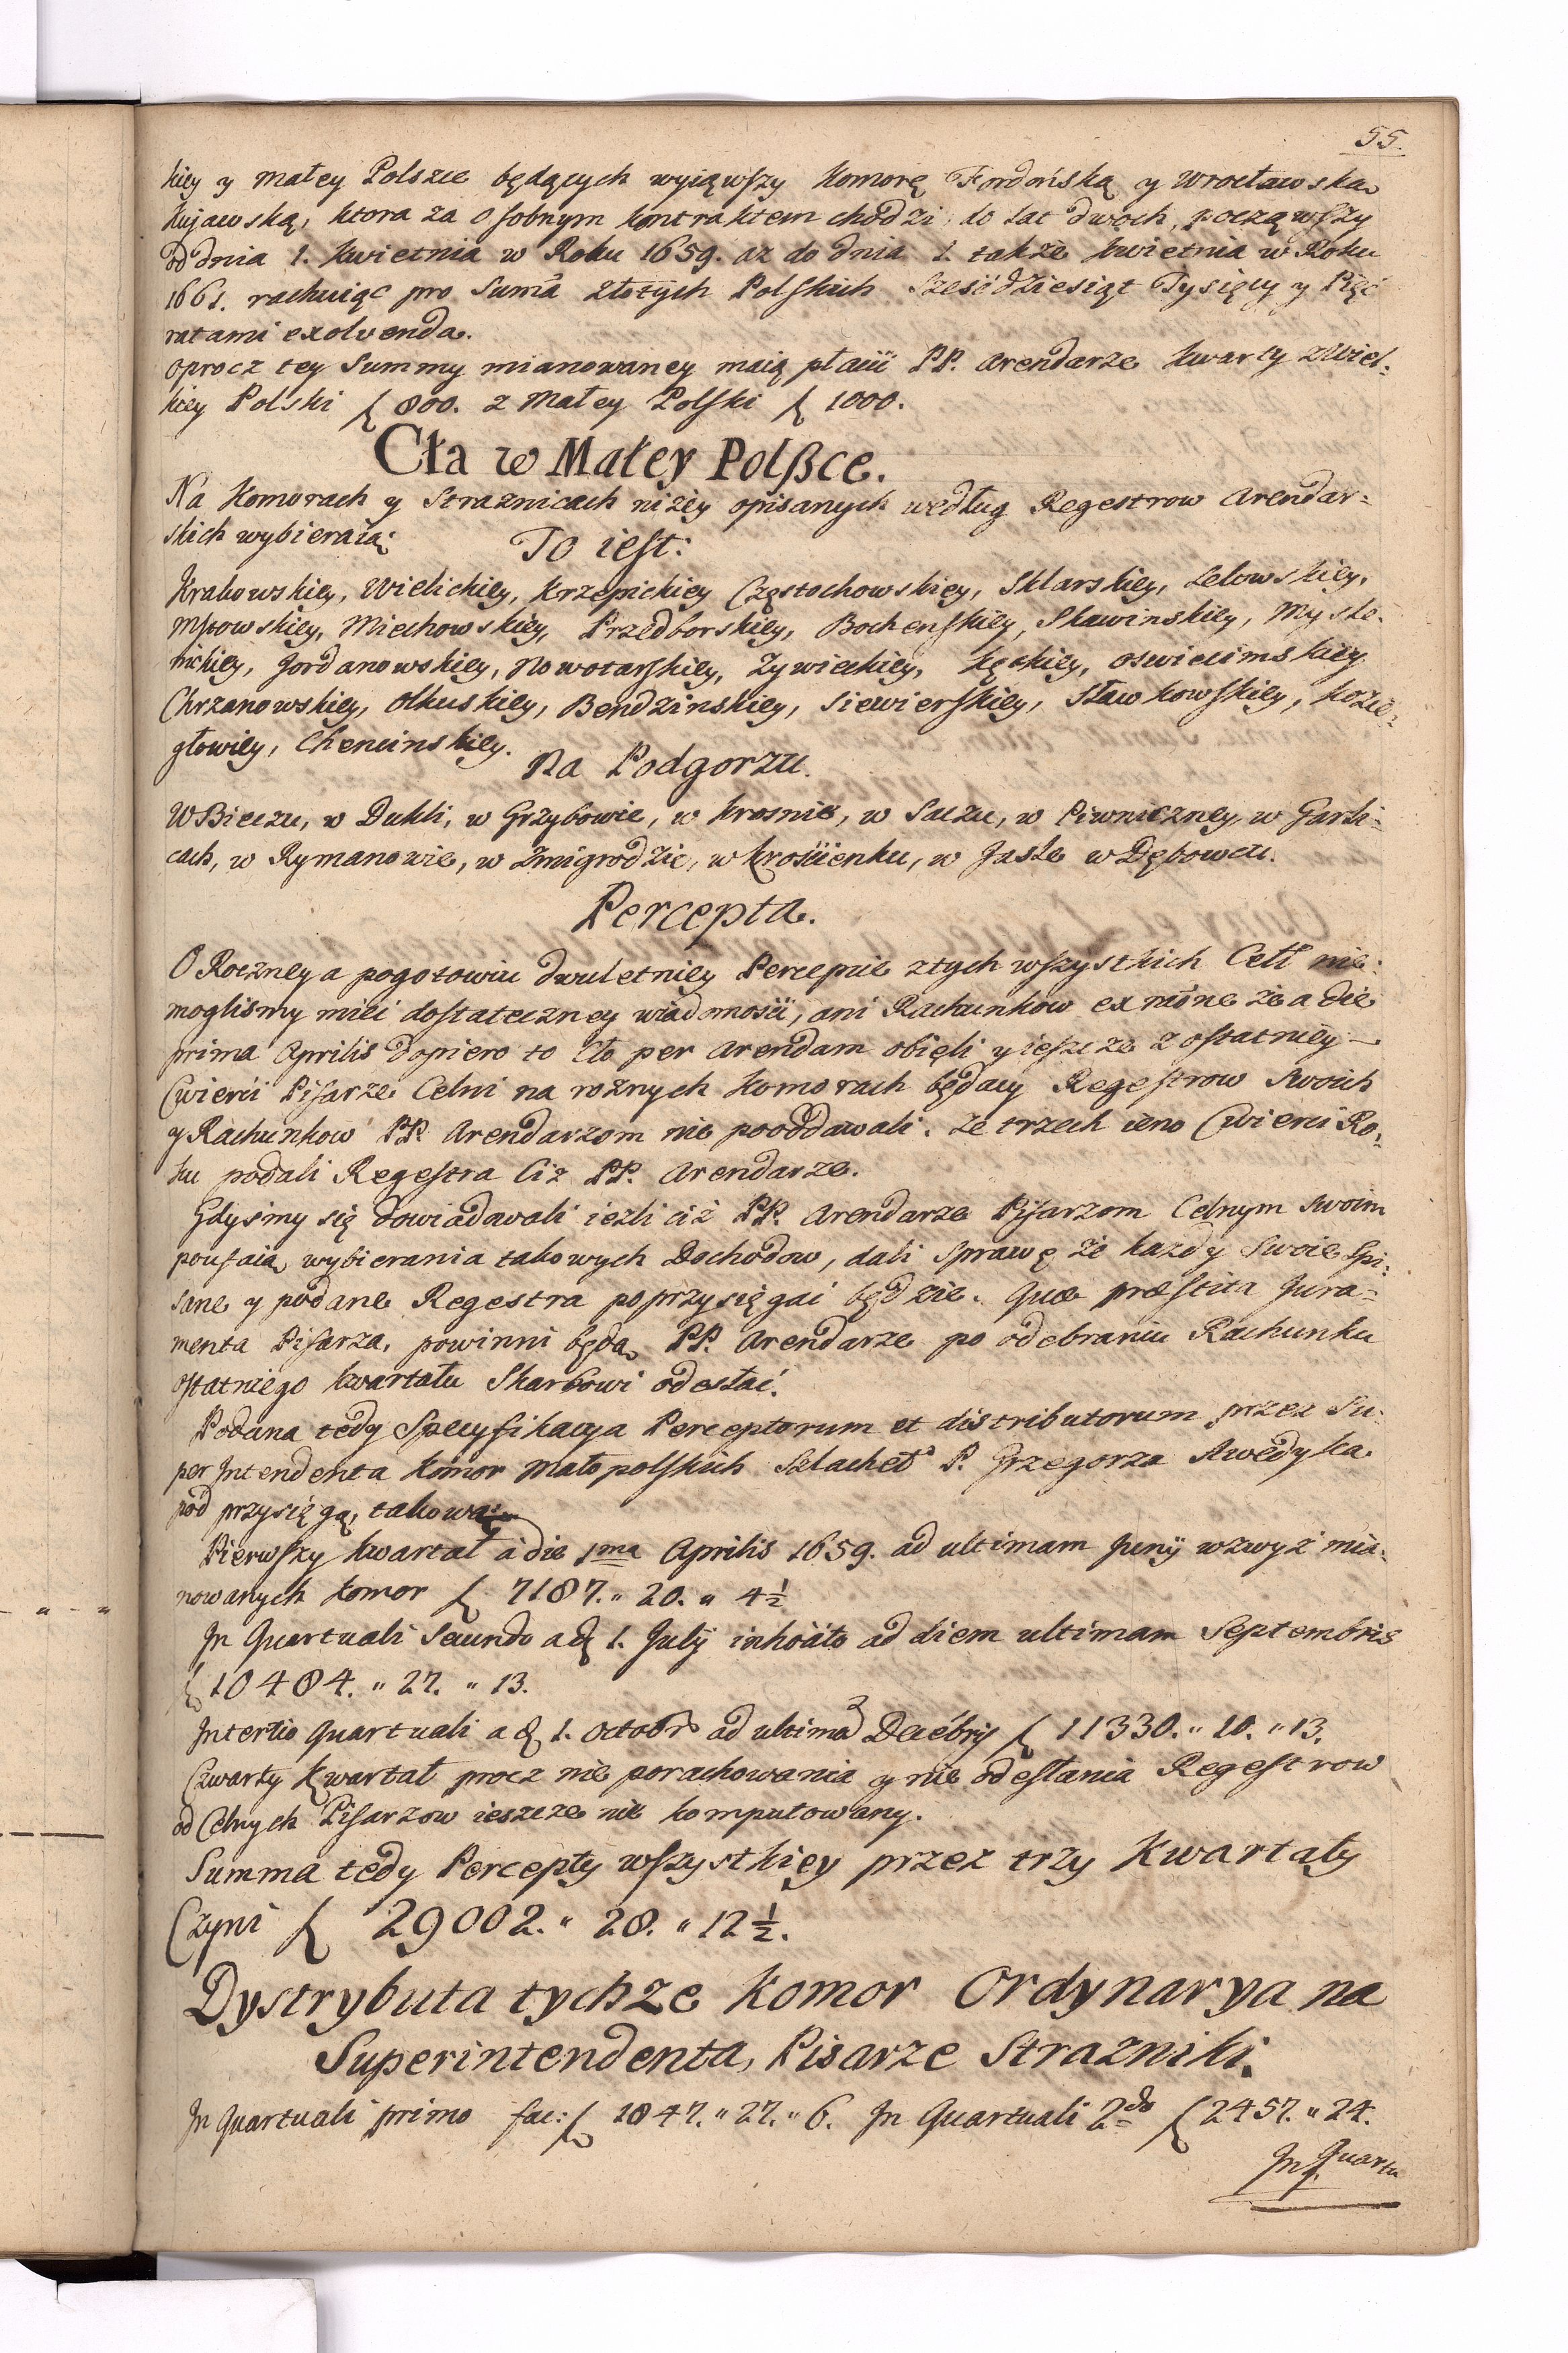 55.
kiey y Małey Polszcze będących wyiąwszy Komorę Fordońską y Wrocławską
Kujawską, ktora za osobnym kontraktem chodzi do Lat dwoch, począwszy
od dnia 1. Kwietnia w Roku 1659. az do dnia 1. także Kwietnia w Roku
1661. rachuiąc pro Suma Złotych Polskich Sześćdziesiąt Tysięcy y Pięć
ratami exolvenda.
oprocz tey Summy mianowaney maią płacić PP. Arendarze kwarty z Wiel:
kiey Polski f 800. z Małey Polski f 1000.
Cła w Małey Polßce.
Na Komorach y Straznicach niżey opisanych według Regestrow Arendar=
skich wybieraią:
To iest:
Krakowskiey, Wielickiey, Krzepickiey Częstochowskiey, Sklarskiey, Lelowskiey,
Mstowskiey, Miechowskiey, Przedborskiey, Bochenskiey, Skawinskiey, Myśle=
nickiey, Jordanowskiey, Nowotarskiey, Zywieckiey, Kęckiey, Oswiecimskiey
Chrzanowskiey, Olkuskiey, Bendzinskiey, Siewierskiey, Sławkowskiey, Kozie=
głowiey, Chencinskiey.
Na Podgorzu.
W Bieczu, w Dukli, w Grzybowie, w Krosnie, w Sączu, w Piwniczney, w Garli=
cach, w Rymanowie, w Zmigrodzie, w Krościenku, w Jaśle w Dębowcu.
Percepta.
O Roczney a pogotowiu dwuletniey Percepcie z tych wszystkich Ceł nie:
moglismy mieć dostateczney wiadomości, ani Rachunkow ex róne że a die
prima Aprilis dopiero to Cło per Arendam obięli y ieszcze z ostatniey
Cwierci Pisarze Celni na roznych Komorach będący Regestrow swoich
y Rachunkow PP. Arendarzom nie pooddawali. Ze trzech ieno Cwierci Ro=
ku podali Regestra Ciż PP. Arendarze.
Gdysmy się dowiadawali iezli ciż PP. Arendarze Pisarzom Celnym swoim
poufaią wybierania takowych Dochodow, dali sprawę że każdy swoie Spi:
sane y podane Regestra poprzysięgać będzie. Quæ præstita Jura=
menta Pisarza, powinni będą PP. Arendarze po odebraniu Rachunku
ostatniego Kwartału Skarbowi odesłać.
Podana tedy Specyfikacya Perceptorum et distributorum przez Su:
per Intendenta Komor Małopolskich Szlachetº P. Grzegorza Awedyka
pod przysięgą, takowa:
Pierwszy Kwartał a die 1ma Aprilis 1659. ad ultimam Junÿ wzwyż mia:
nowanych komor f 7187. " 20. " 4½
In Quartuali Secundo a d 1. Julÿ inhoãto ad diem ultimam Septembris
f 10484. " 27. " 13.
In tertio Quartuali a d 1. Octobr ad ultima Decẽbris f 11330. " 10. " 13.
Czwarty Kwartał procz nie porachowania y nie odesłania Regestrow
od Celnych Pisarzow ieszcze nie komputowany.
Summa tedy Percepty wszystkiey przez trzy Kwartały
Czyni f 29002. " 28. " 12½.
Dystrybuta tychze Komor Ordynarya na
Superintendenta, Pisarze Strazniki.
In Quartuali primo fac: f 1847. " 27. " 6. In Quartuali 2do f 2457. " 24.
In Quartu